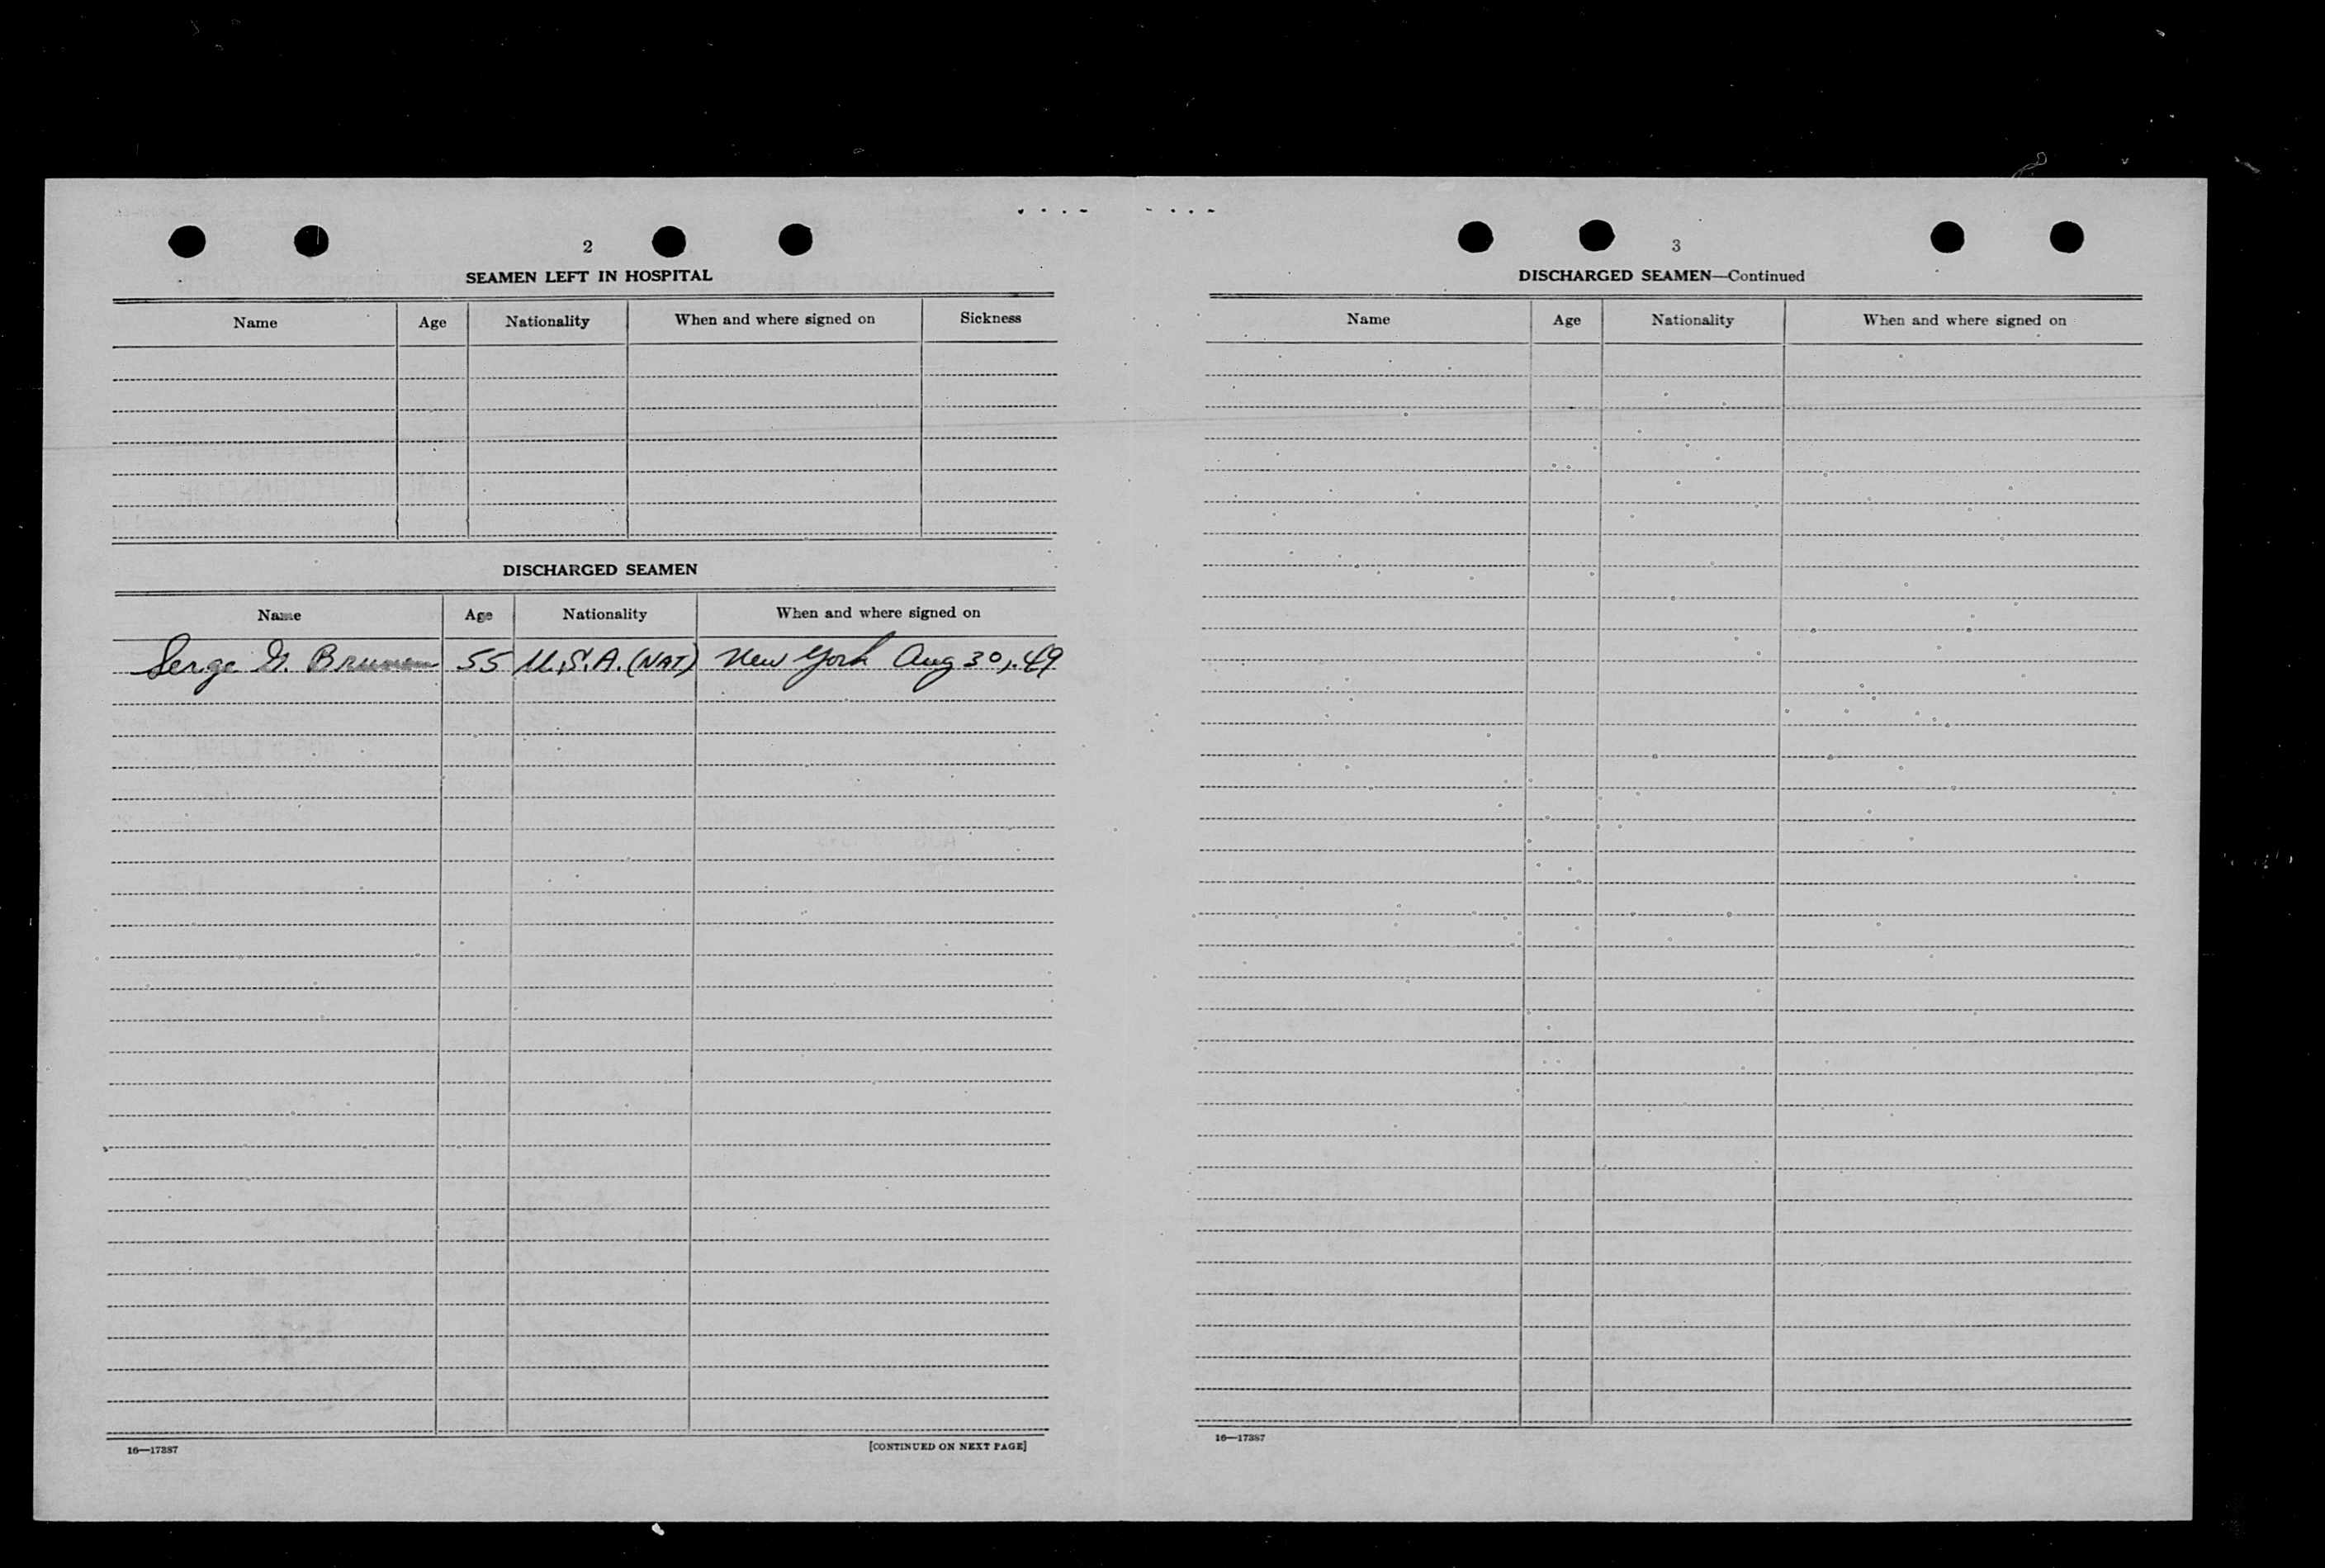 2
SEAMEN LEFT IN HOSPITAL
Name Age Nationality When and where signed on Sickness
DISCHARGED SEAMEN
Name Age Nationality When and where signed on
Serge G. 55 U.S.A. (NAT) New York Aug 30, 49
16—17387
[CONTINUED ON NEXT PAGE]
3
DISCHARGED SEAMEN—Continued
Name Age Nationality When and where signed on
16—17387